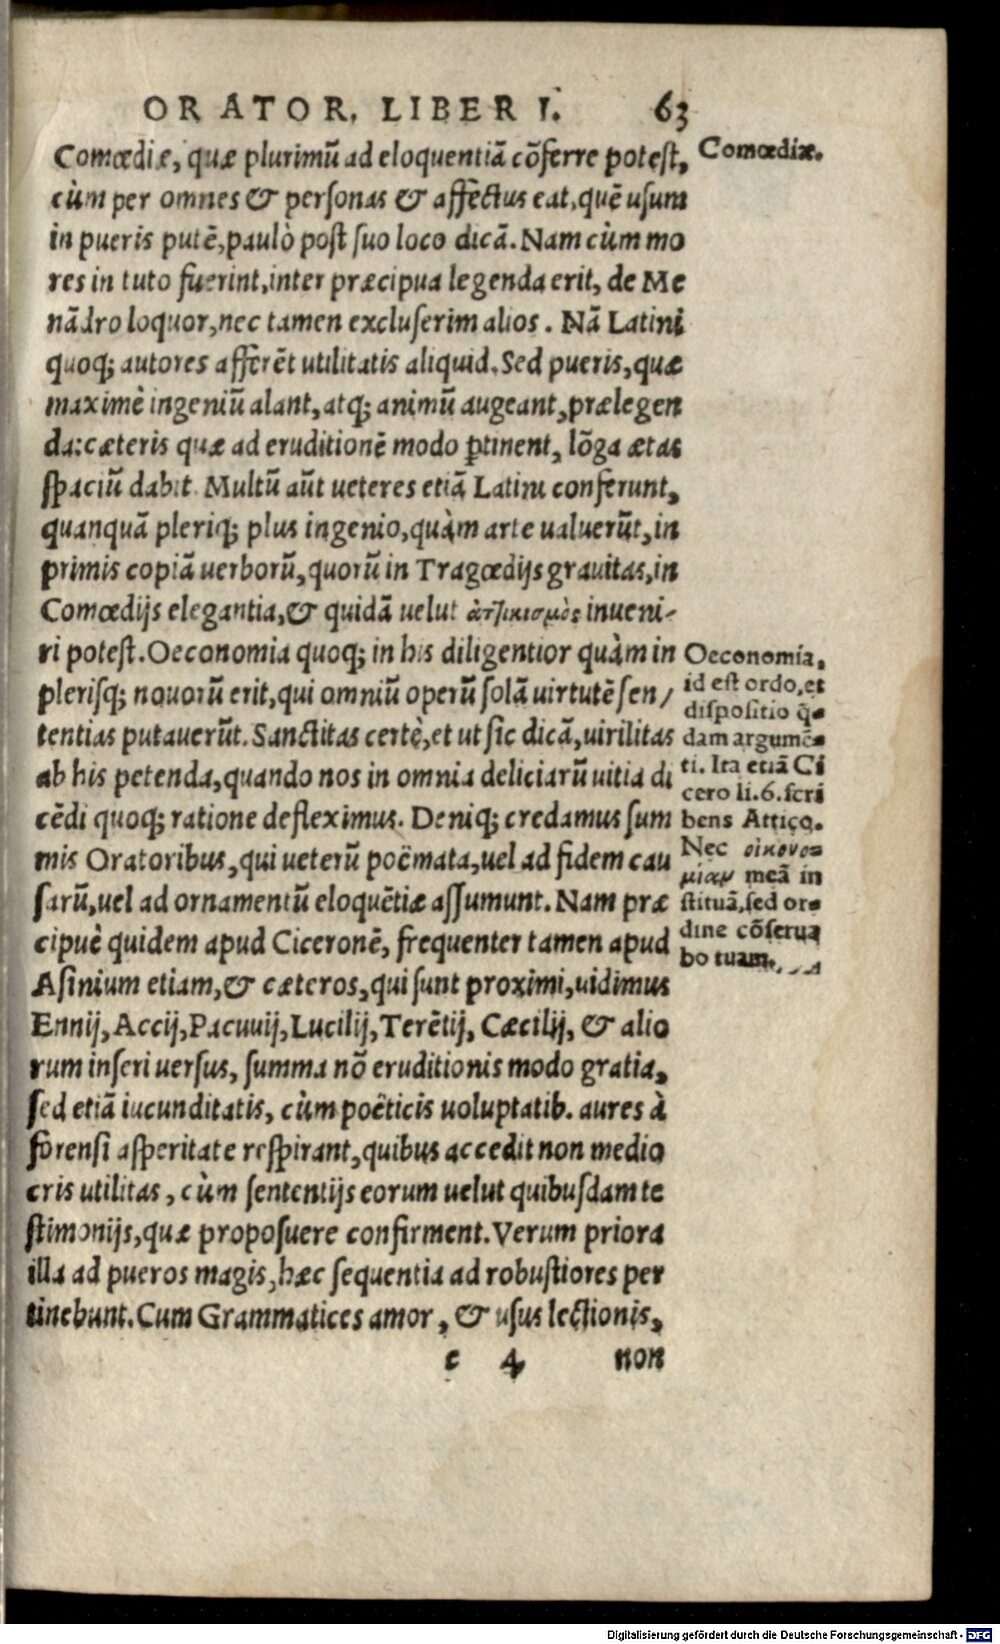 ORATOR. LIBER I. 63
Comœdiæ, quæ plurimũ ad eloquentiã cõferre potest,
cùm per omnes & personas & affectus eat, quẽ usum
in pueris putẽ, paulò post suo loco dicã. Nam cùm mo
res in tuto fuerint, inter præcipua legenda erit, de Me
nãdro loquor, nec tamen excluserim alios. Nã Latini
quoq; autores afferẽt utilitatis aliquid. Sed pueris, quæ
maximè ingeniũ alant, atq; animũ augeant, prælegen
da: cæteris quæ ad eruditionẽ modo ꝑtinent, lõga ætas
spaciũ dabit. Multũ aũt ueteres etiã Latini conferunt,
quanquã pleriq; plus ingenio, quàm arte ualuerũt, in
primis copiã uerborũ, quorũ in Tragœdijs grauitas, in
Comœdijs elegantia, & quidã uelut ἀτ]ικισμὸς inueni-
ri potest. Oeconomia quoq; in his diligentior quàm in
plerisq; nouorũ erit, qui omniũ operũ solã uirtutẽ sen/
tentias putauerũt. Sanctitas certè, et ut sic dicã, uirilitas
ab his petenda, quando nos in omnia deliciarũ uitia di
cẽdi quoq; ratione defleximus. Deniq; credamus sum
mis Oratoribus, qui ueterũ poëmata, uel ad fidem cau
sarũ, uel ad ornamentũ eloquẽtiæ assumunt. Nam præ
cipuè quidem apud Ciceronẽ, frequenter tamen apud
Asinium etiam, & cæteros, qui sunt proximi, uidimus
Ennij, Accij, Pacuuij, Lucilij, Terẽtij, Cæcilij, & alio
rum inseri uersus, summa nõ eruditionis modo gratia,
sed etiã iucunditatis, cùm poëticis uoluptatib. aures à
forensi asperitate respirant, quibus accedit non medio
cris utilitas, cùm sententijs eorum uelut quibusdam te
stimonijs, quæ proposuere confirment. Verum priora
illa ad pueros magis, hæc sequentia ad robustiores per
tinebunt. Cum Grammatices amor, & usus lectionis,
e 4 non
Comœdiæ.
Oeconomia,
id est ordo, et
dispositio q̃-
dam argumẽ-
ti. Ita etiã Ci
cero li. 6. scri
bens Attico.
Nec οἰκονο-
μίαν meã in
stituã, sed or-
dine cõserua
bo tuam.
Digitalisierung gefördert durch die Deutsche Forschungsgemeinschaft - DFG